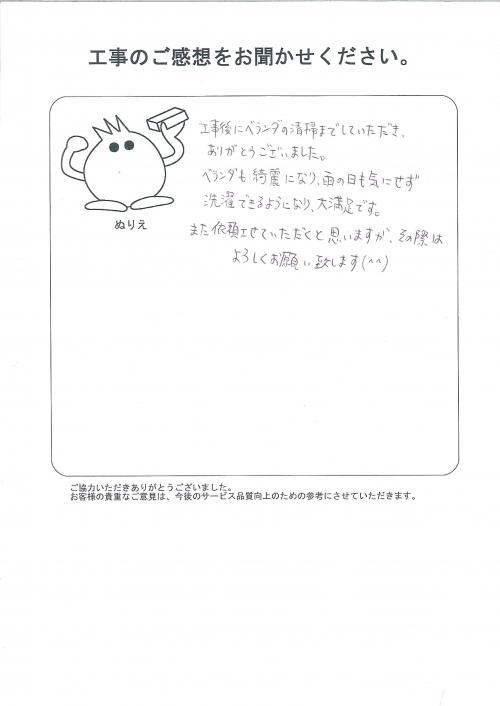 工事のご感想をお聞かせください。
工事後にベランダの清掃までしていただき、
ありがとうございました。
ベランダも綺麗になり、雨の日も気にせず
洗濯できるようになり、大満足です。
また依頼させていただくと思いますが、その際は
よろしくお願い致します(^^)
ぬりえ
ご協力いただきありがとうございました。
お客様の貴重なご意見は、今後のサービス品質向上のための参考にさせていただきます。